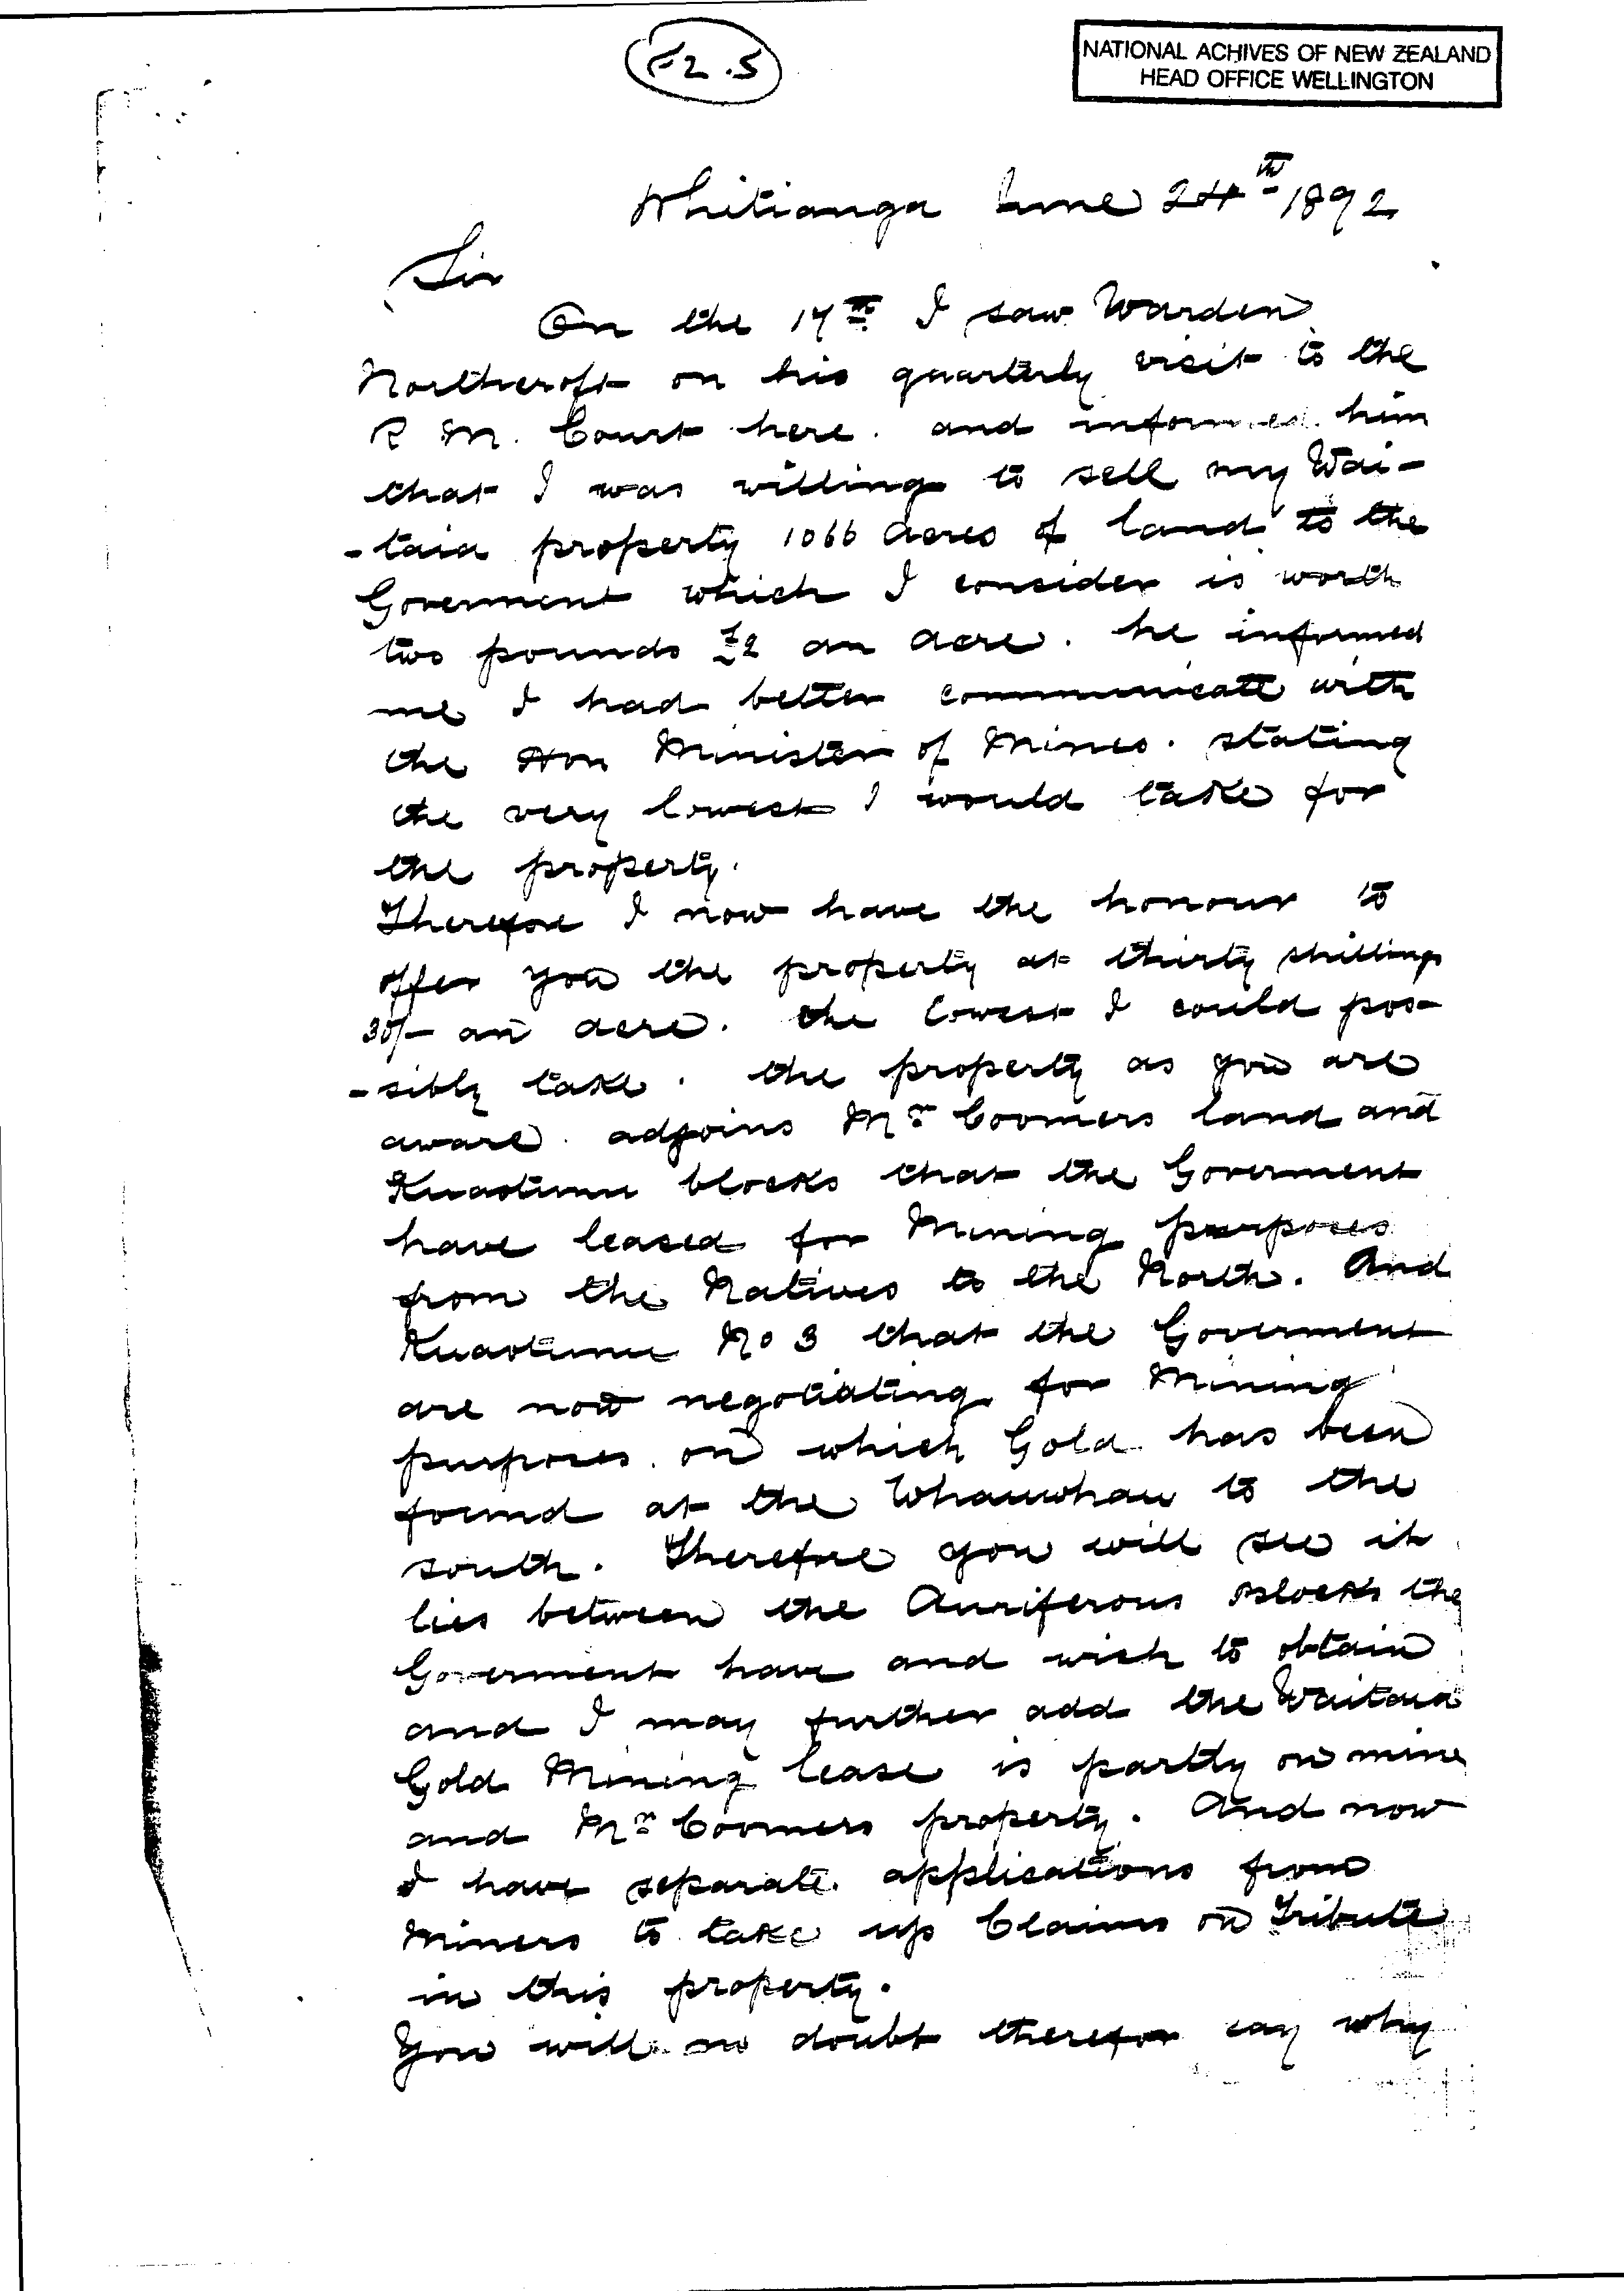 F2.5
NATIONAL ACHIVES OF NEW ZEALAND
HEAD OFFICE WELLINGTON
Whitianga June 24th 1892
Sir
On the 17th I saw Warden
Northcroft on his quarterly visit to the
R M. Court here. and informed him
that I was willing to sell my Wai-
-taia property 1066 acres of land to the
Goverment which I consider is worth
two pounds £2 an acre. he informed
me I had better communicate with
the Hon Minister of Mines. stating
the very lowest I would take for
the property.
Therefore I now have the honour to
offer you the property at thirty shillings
30/- an acre. the lowest I could pos-
-sibly take. the property as you are
aware. adjoins Mr Coomers land and
Kuaotunu blocks that the Goverment
have leased for Mining purposes
from the Natives to the North. And
Kuaotunu No 3 that the Goverment
are now negotiating for Mining
purposes. on which Gold has been
found at the Whauwhau to the
south. Therefore you will see it
lies between the Auriferous Blocks the
Goverment have and wish to obtain
and I may further add the Waitaia
Gold Mining lease is partly on mine
and Mr Coomers property. And now
I have separate applications from
Miners to take up Claims on Tribute
in this property.
You will no doubt therefor say why